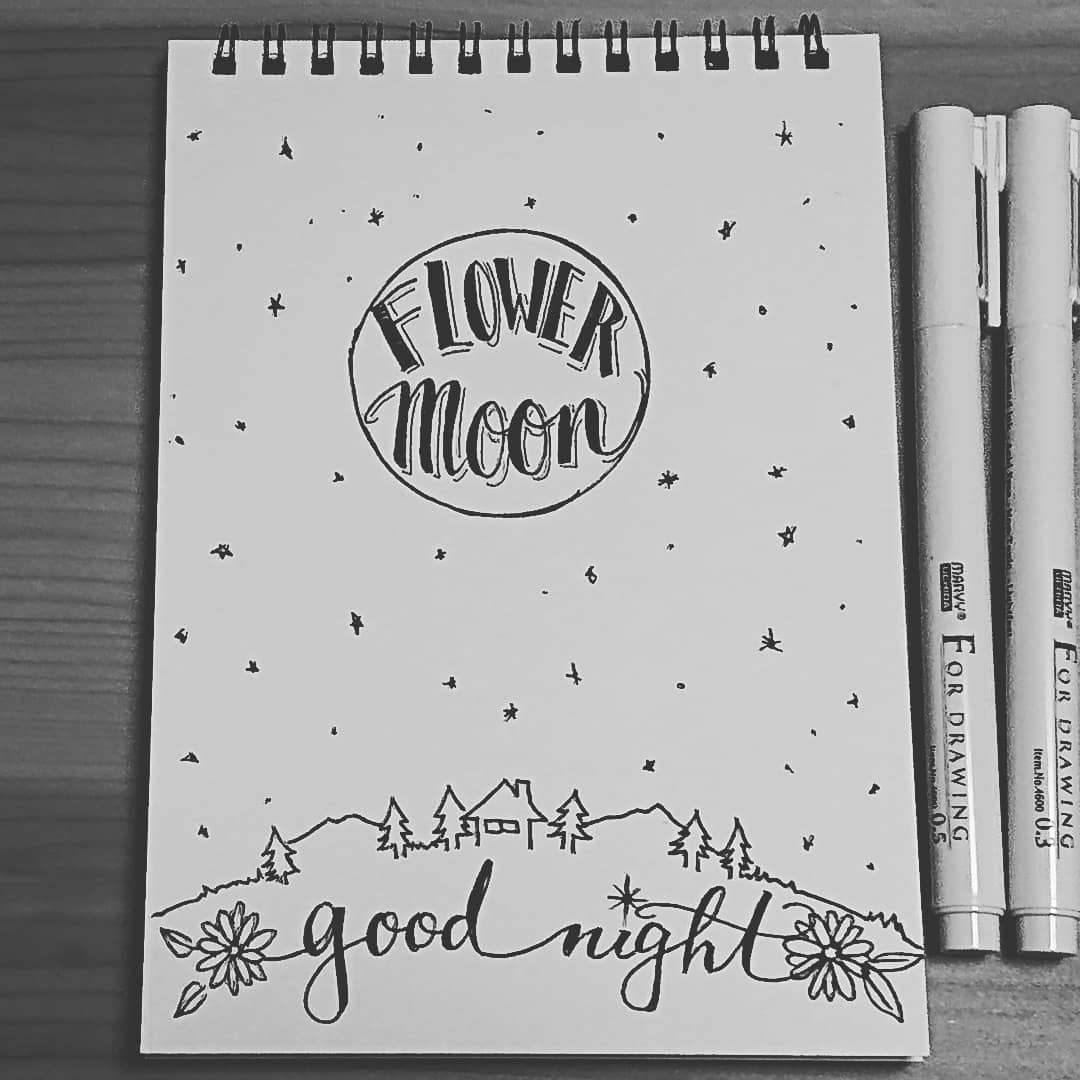 FLOWER
Moon
good night
MARVY® UCHIDA
FOR DRAWING
Item.No.4600 0.5
MARVY® UCHIDA
FOR DRAWING
Item.No.4600 0.3